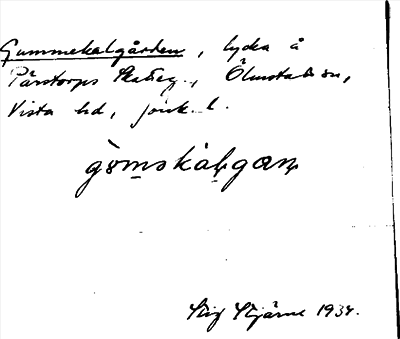 Gummekalgården, lycka å
Pärstorps skatteg., Ölmstads sn,
Vista hd, jönk. l.
gömskàlgaɳ
Stig Stjärne 1934.